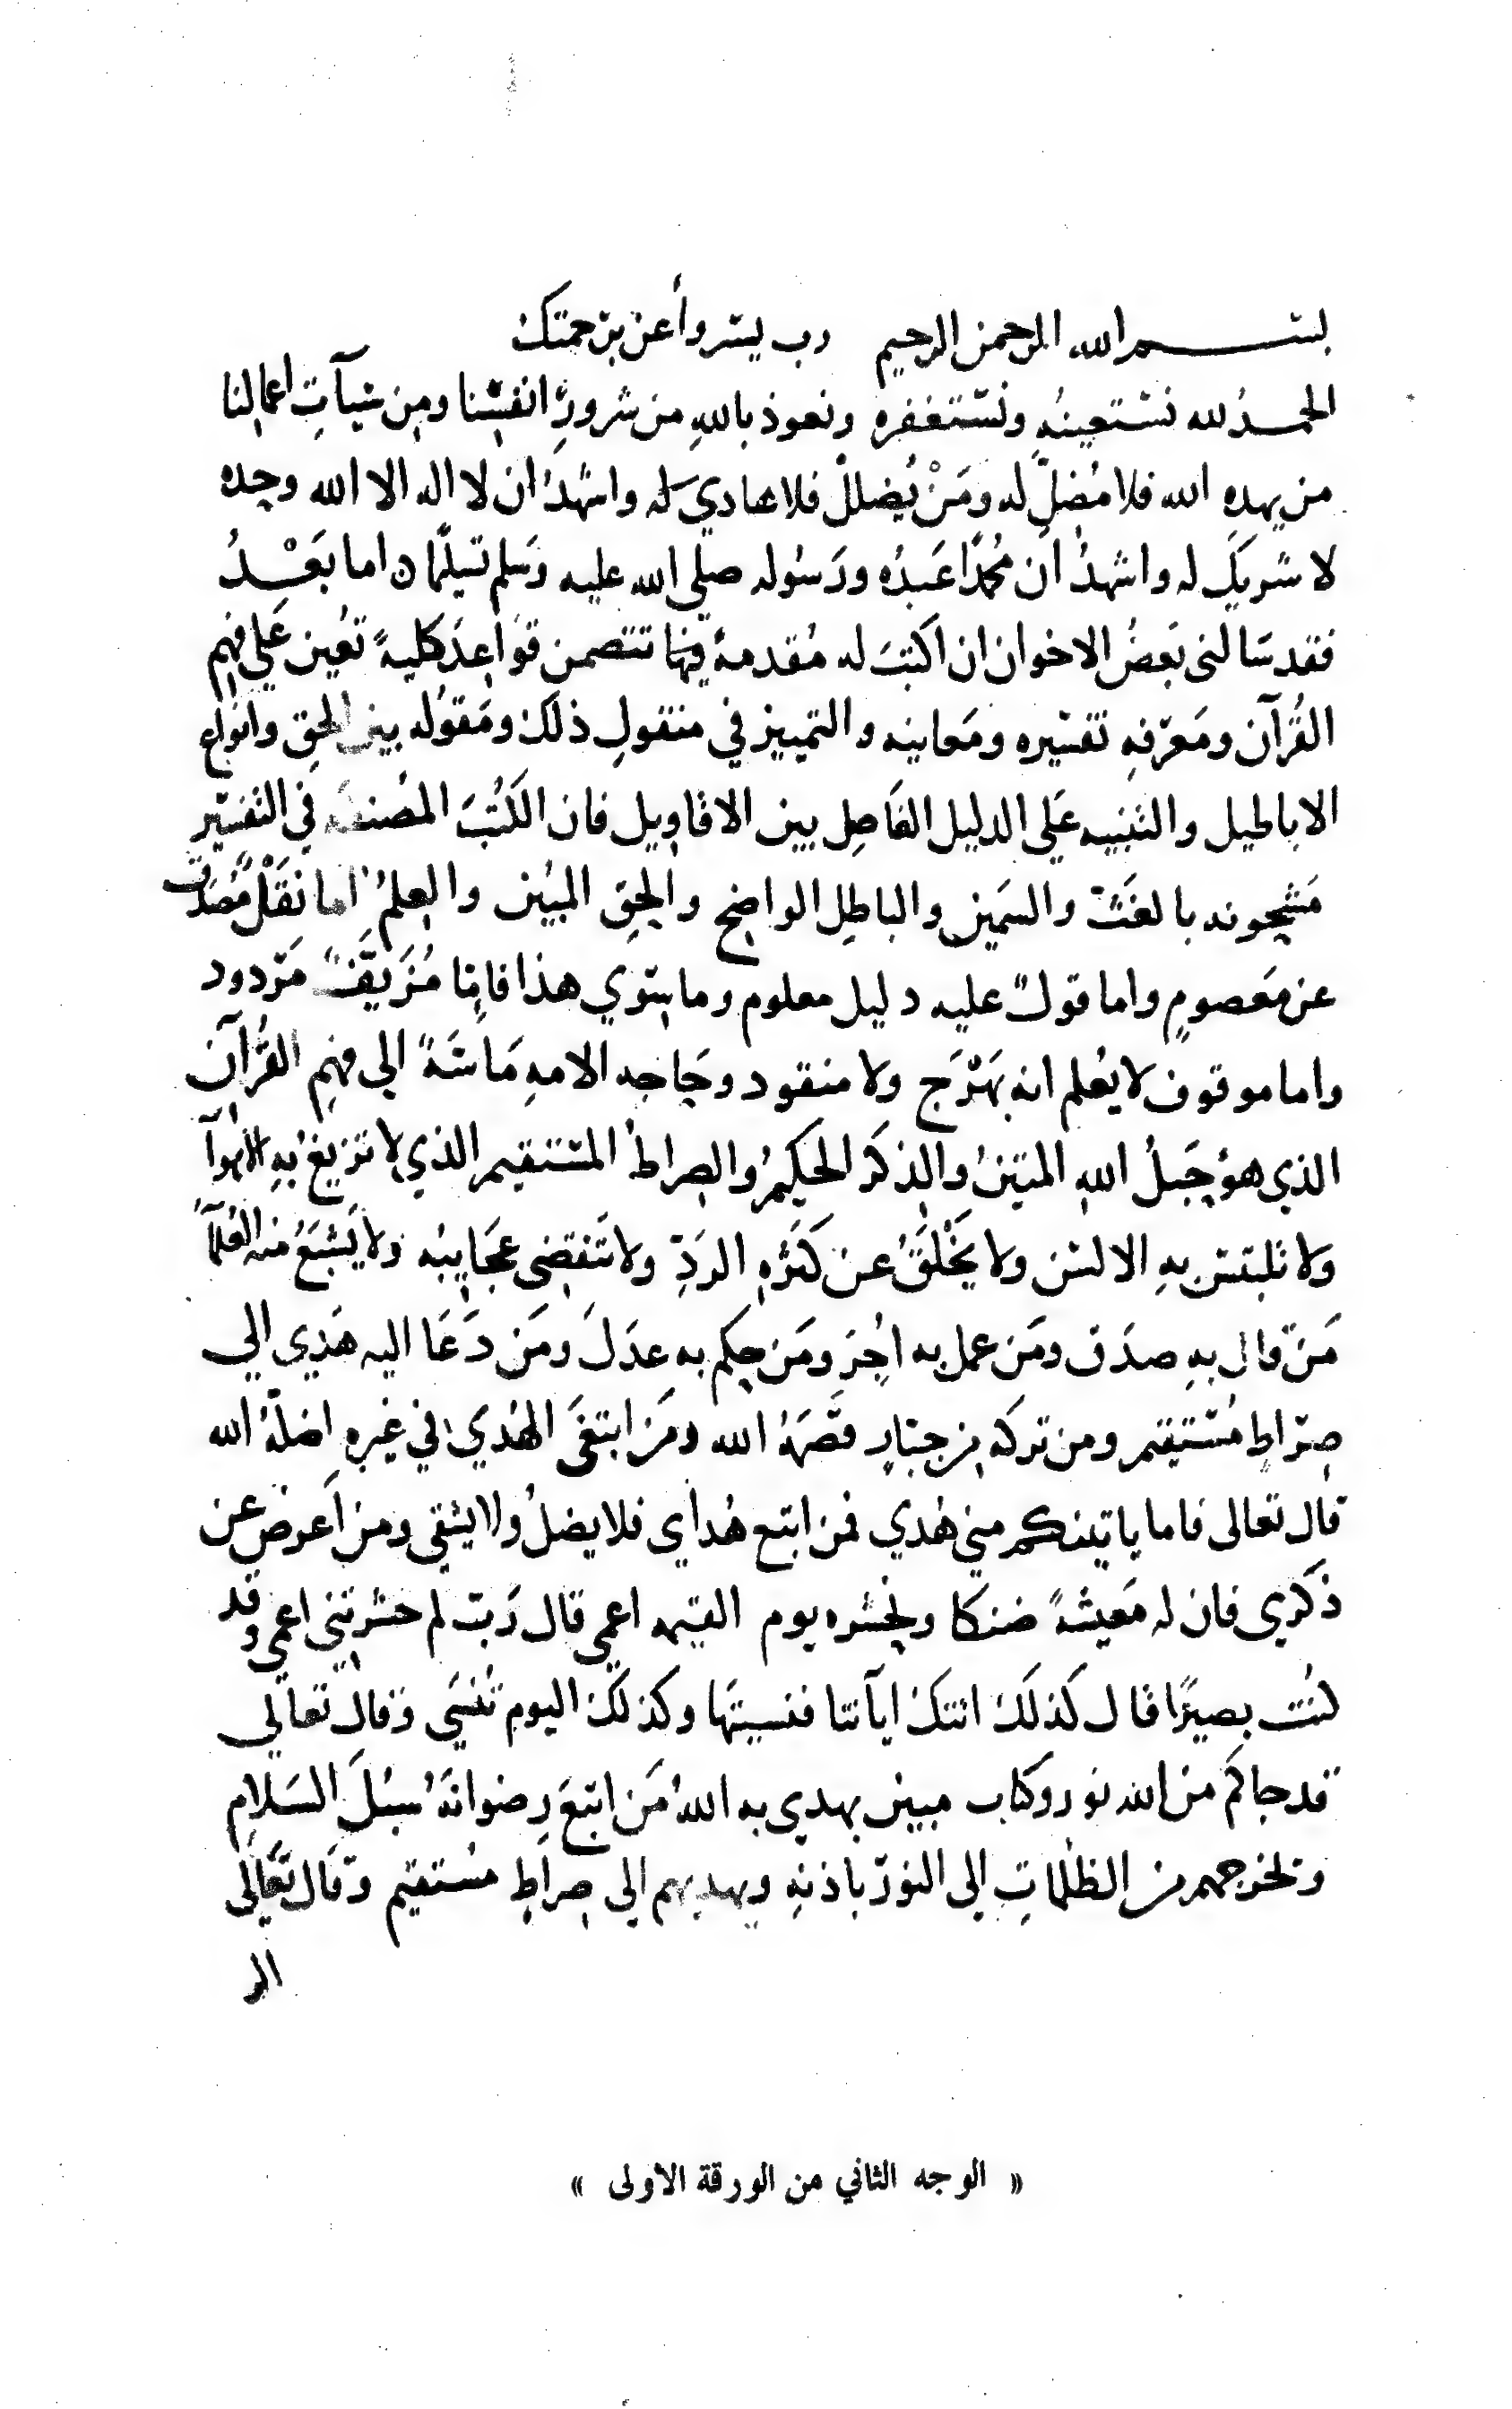 بسم الله الرحمن الرحيم رب يسّر وأعن برحمتك
الحمدُ لله نستعينُه ونستغفره ونعوذ باللهِ من شرورِ انفسنا ومِن سيآتِ اعمالنا
من يهدِهِ الله فلا مُضلّ له ومَنْ يُضلل فلا هادي له واشهدُ ان لا اله الا الله وحده
لا شريكَ له واشهدُ ان مُحمدًا عَبدُه ورَسُوله صلى الله عليه وَسَلم تسليما ن اما بَعْدُ
فقد سَالنى بَعضُ الاخوان ان اكتبَ له مُقدمةً فيها تتضمن قوَاعِدَ كليةً تعُين عَلى فهم
القُرآن ومَعرفهِ تفسيره ومَعانيه والتمييز في منقولِ ذلك ومَقوُله بين الحقِ وانواع
الاباطيل والتنبيه عَلى الدليل الفَاصِل بين الاقاويل فان الكُتُبَ المُصنفه في التفسيرِ
مَشحونه بالغَثّ والسَمينِ والباطِل الواضح والحقِ المبيُن والعِلمُ اما نَقْلٌ مُصَدّق
عن مَعصومٍ واما قولٌ عليه دليل معلوم وما سِوي هذا فامِّا مُزَيَّفٌ مَردود
واما موقوف لا يعُلم انه بَهْرَج ولا منقود وحَاجه الامهِ مَاسَّةً الى فهمِ القُرآن
الذي هوُ حَبلُ اللهِ المتينُ والذِكرُ الحَكيمُ والصِراطُ المستقيم الذي لا تزيغ بهِ الأهوآ
وَلا تلبتس بهِ الالسُن ولا يَخْلَقُ عن كثرَهِ الردِّ ولا تَنقضِى عجَايبُه ولا يَشبَعُ منه العُلمآُ
مَن قال بهِ صدَق ومَن عمل به اُجِرَ ومَن حكم به عدَلَ ومَن دَعَا اليه هَدي الي
صِراطٍ مُستقيم ومن تركه مِن جبّارٍ قصَمَهُ الله ومَن ابتغَى الهُديَ في غيرِهِ اضلّهُ الله
قال تعالى فاما ياتينكم مني هُدي فمن اتبع هُدأي فلا يضلُ ولا يشقي ومن أعرض عن
ذكري فان له مَعيشةً ضنكا ونحشره يوم القيمه اعمي قال رَب لم حشرتني اعمي وقد
كنُت بصيرًا قال كَذلَك اتتك ايآتنا فنسيتَها وكذلك اليوم تُنسَى وَقال تعالى
قد جاكم من الله نور وكتاب مبين يهدي به اللهُ مَن اتبعَ رِضوانَهُ سُبُلَ السَلامِ
ونخرجهم من الظلُماتِ الى النور باذنهِ ويهديهم الى صِراطٍ مستقيم وقال تعَالى
الر
« الوجه الثاني من الورقة الأولى »